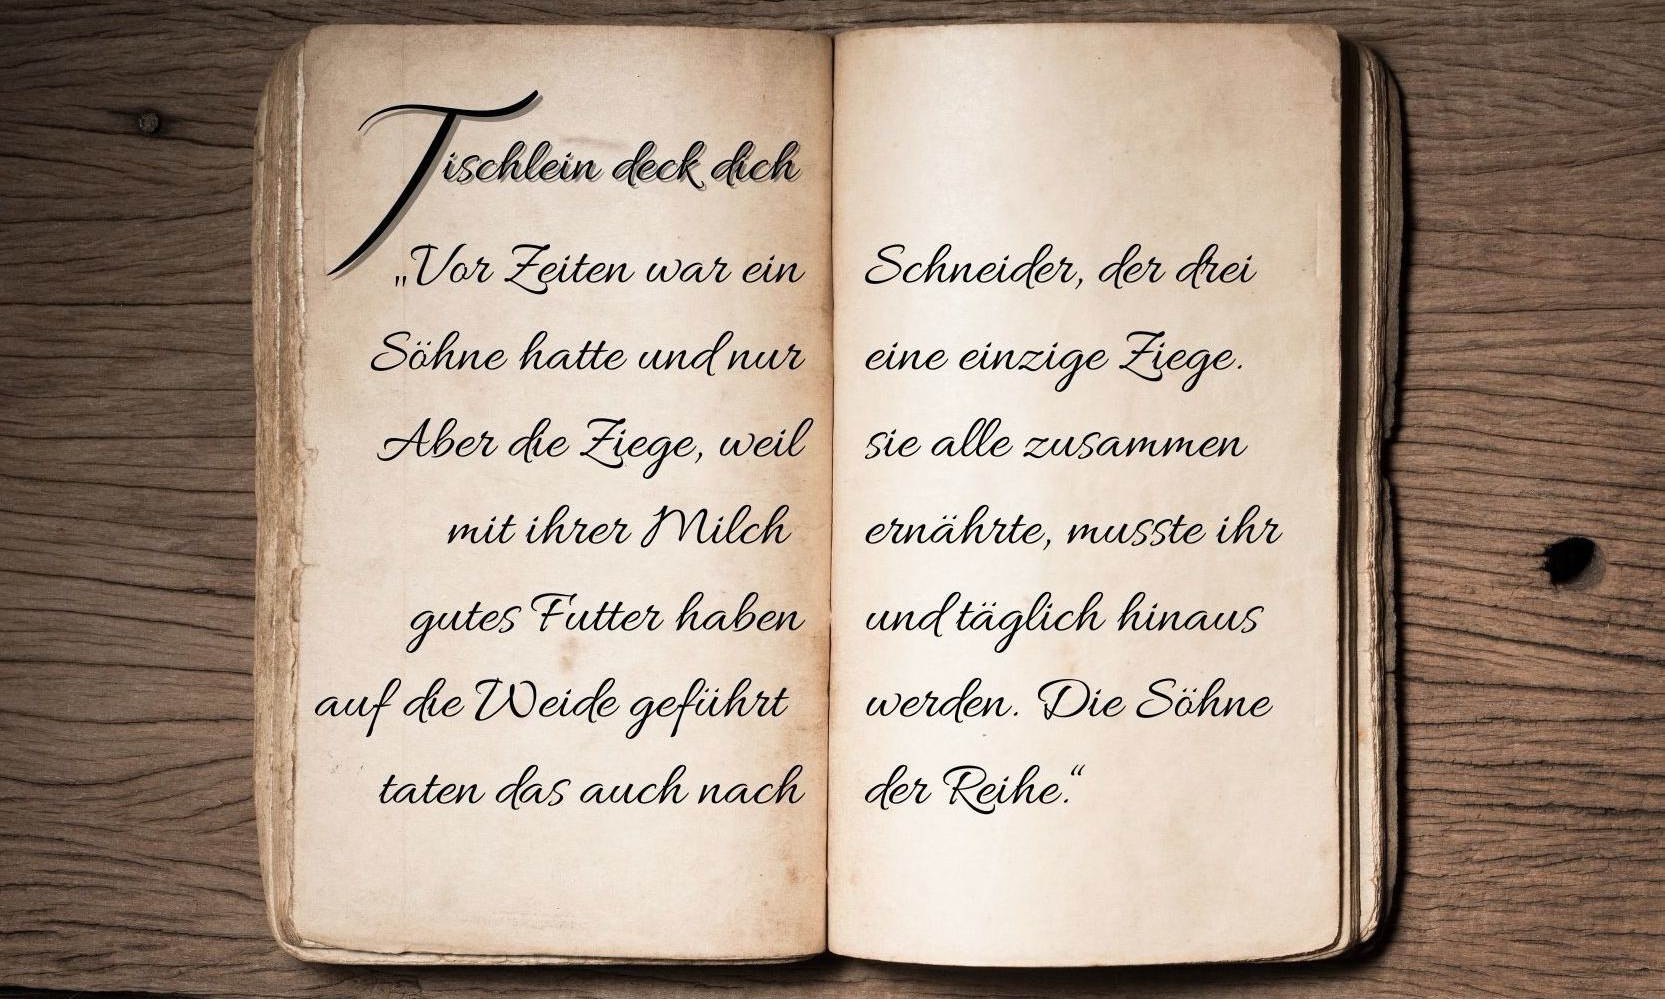 Tischlein deck dich
„Vor Zeiten war ein Schneider, der drei
Söhne hatte und nur eine einzige Ziege.
Aber die Ziege, weil sie alle zusammen
mit ihrer Milch ernährte, musste ihr
gutes Futter haben und täglich hinaus
auf die Weide geführt werden. Die Söhne
taten das auch nach der Reihe.“